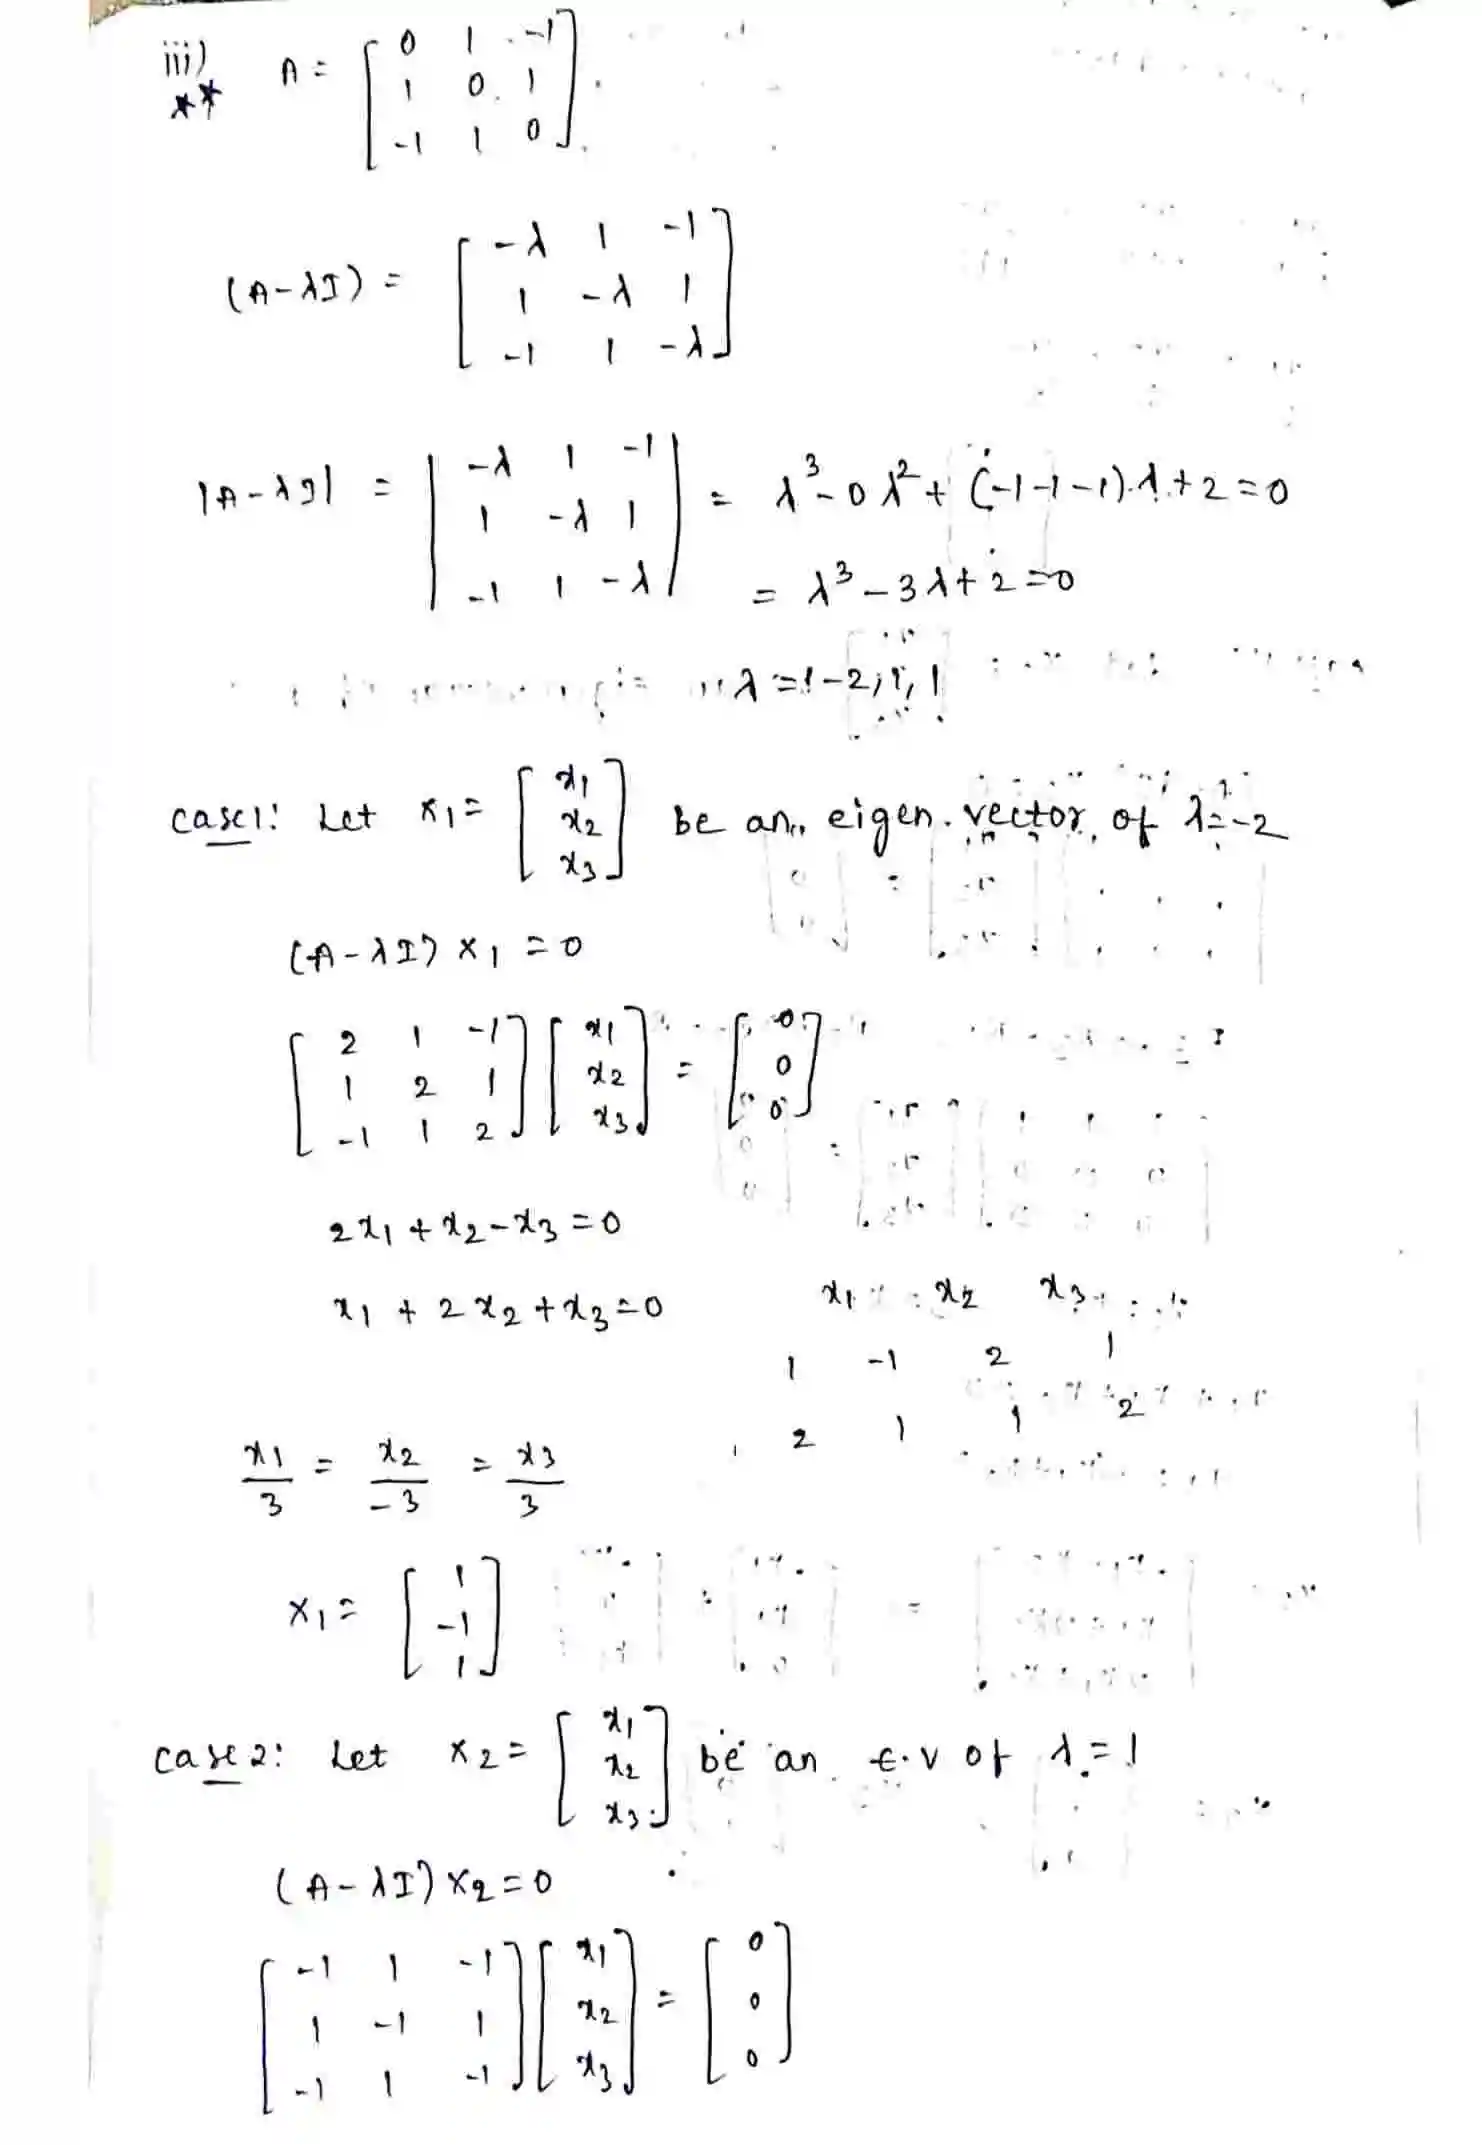 iii) A = [ 0 1 -1
** 1 0 1
-1 1 0 ]
(A-λI) = [ -λ 1 -1
1 -λ 1
-1 1 -λ ]
|A-λI| = | -λ 1 -1
1 -λ 1
-1 1 -λ | = λ³-0λ²+(-1-1-1).λ+2=0
= λ³-3λ+2=0
λ=-2,1,1
case1: Let x₁= [ x₁
x₂
x₃ ] be an eigen vector of λ=-2
(A-λI) x₁ =0
[ 2 1 -1
1 2 1
-1 1 2 ] [ x₁
x₂
x₃ ] = [ 0
0
0 ]
2x₁+x₂-x₃=0
x₁+2x₂+x₃=0
x₁ x₂ x₃
1 -1 2 1
2 1 1 2
x₁/3 = x₂/-3 = x₃/3
x₁= [ 1
-1
1 ]
case2: Let x₂= [ x₁
x₂
x₃ ] be an E.V of λ=1
(A-λI) x₂=0
[ -1 1 -1
1 -1 1
-1 1 -1 ] [ x₁
x₂
x₃ ] = [ 0
0
0 ]